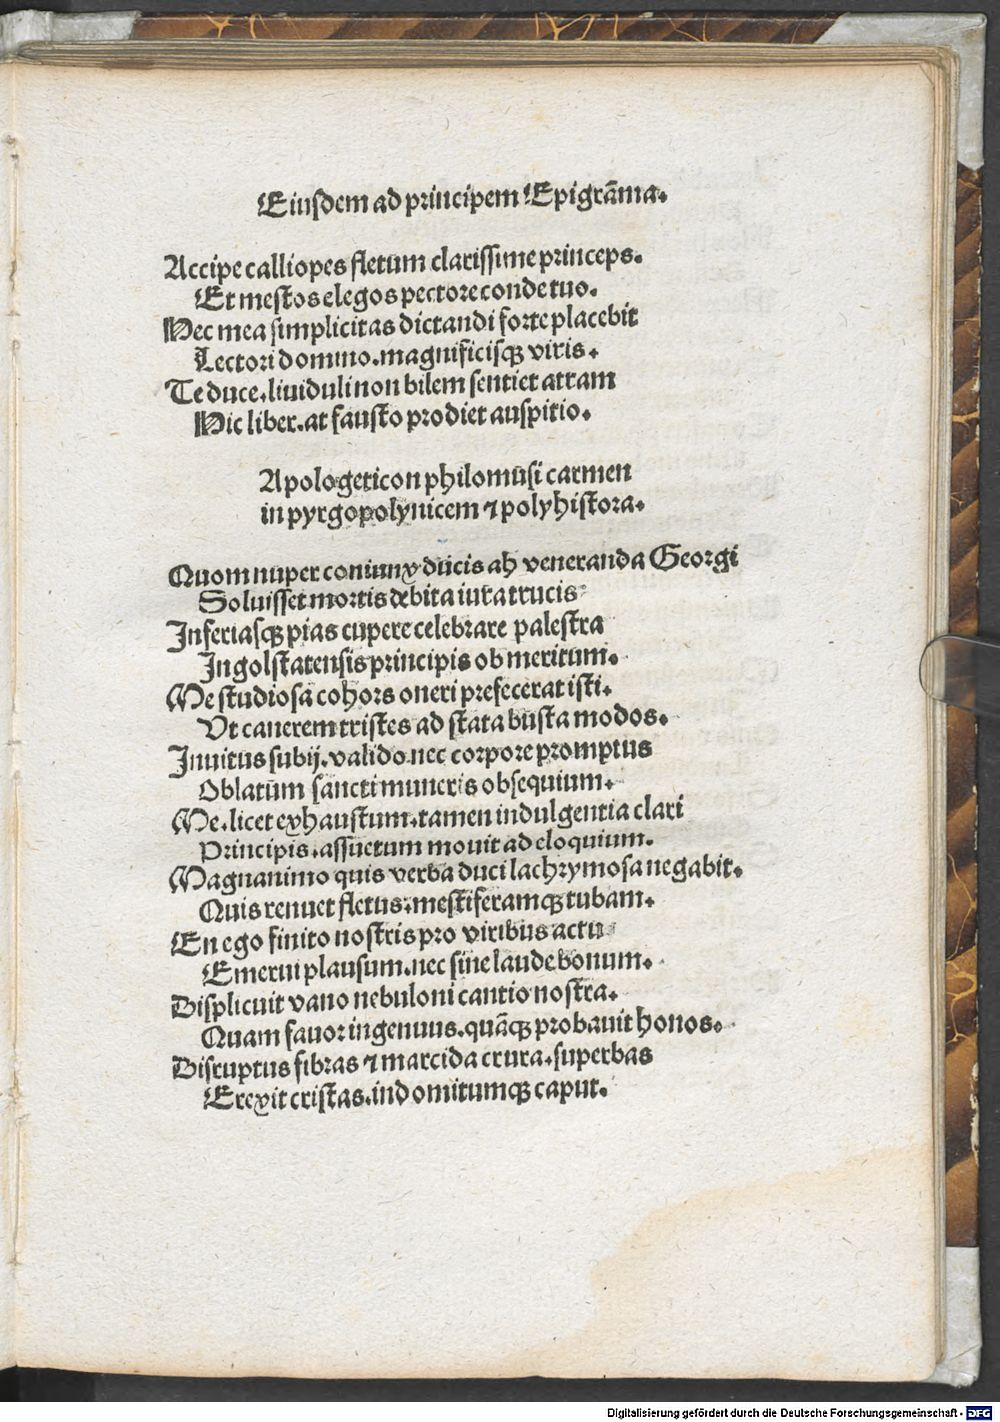 Eiusdem ad principem Epigrāma.
Accipe calliopes fletum clarissime princeps.
Et mestos elegos pectore conde tuo.
Hec mea simplicitas dictandi forte placebit
Lectori domino.magnificisqꝫ viris.
Te duce.liuiduli non bilem sentiet atram
Hic liber.at fausto prodiet auspitio.
Apologeticon philomusi carmen
in pyrgopolynicem ⁊ polyhistora.
Quom nuper coniunx ducis ah veneranda Georgi
Soluisset mortis debita iura trucis
Inferiasqꝫ pias cupere celebrare palestra
Ingolstatensis principis ob meritum.
Me studiosa cohors oneri prefecerat isti.
Vt canerem tristes ad stata busta modos.
Inuitus subij.valido nec corpore promptus
Oblatum sancti muneris obsequium.
Me.licet exhaustum.tamen indulgentia clari
Principis.assuetum mouit ad eloquium.
Magnanimo quis verba duci lachrymosa negabit.
Quis renuet fletus.mestiferamqꝫ tubam.
En ego finito nostris pro viribus actu
Emerui plausum.nec sine laude bonum.
Displicuit vano nebuloni cantio nostra.
Quam fauor ingenuus.quāqꝫ probauit honos.
Disruptus fibras ⁊ marcida crura.superbas
Erexit cristas.indomitumqꝫ caput.
Digitalisierung gefördert durch die Deutsche Forschungsgemeinschaft - DFG